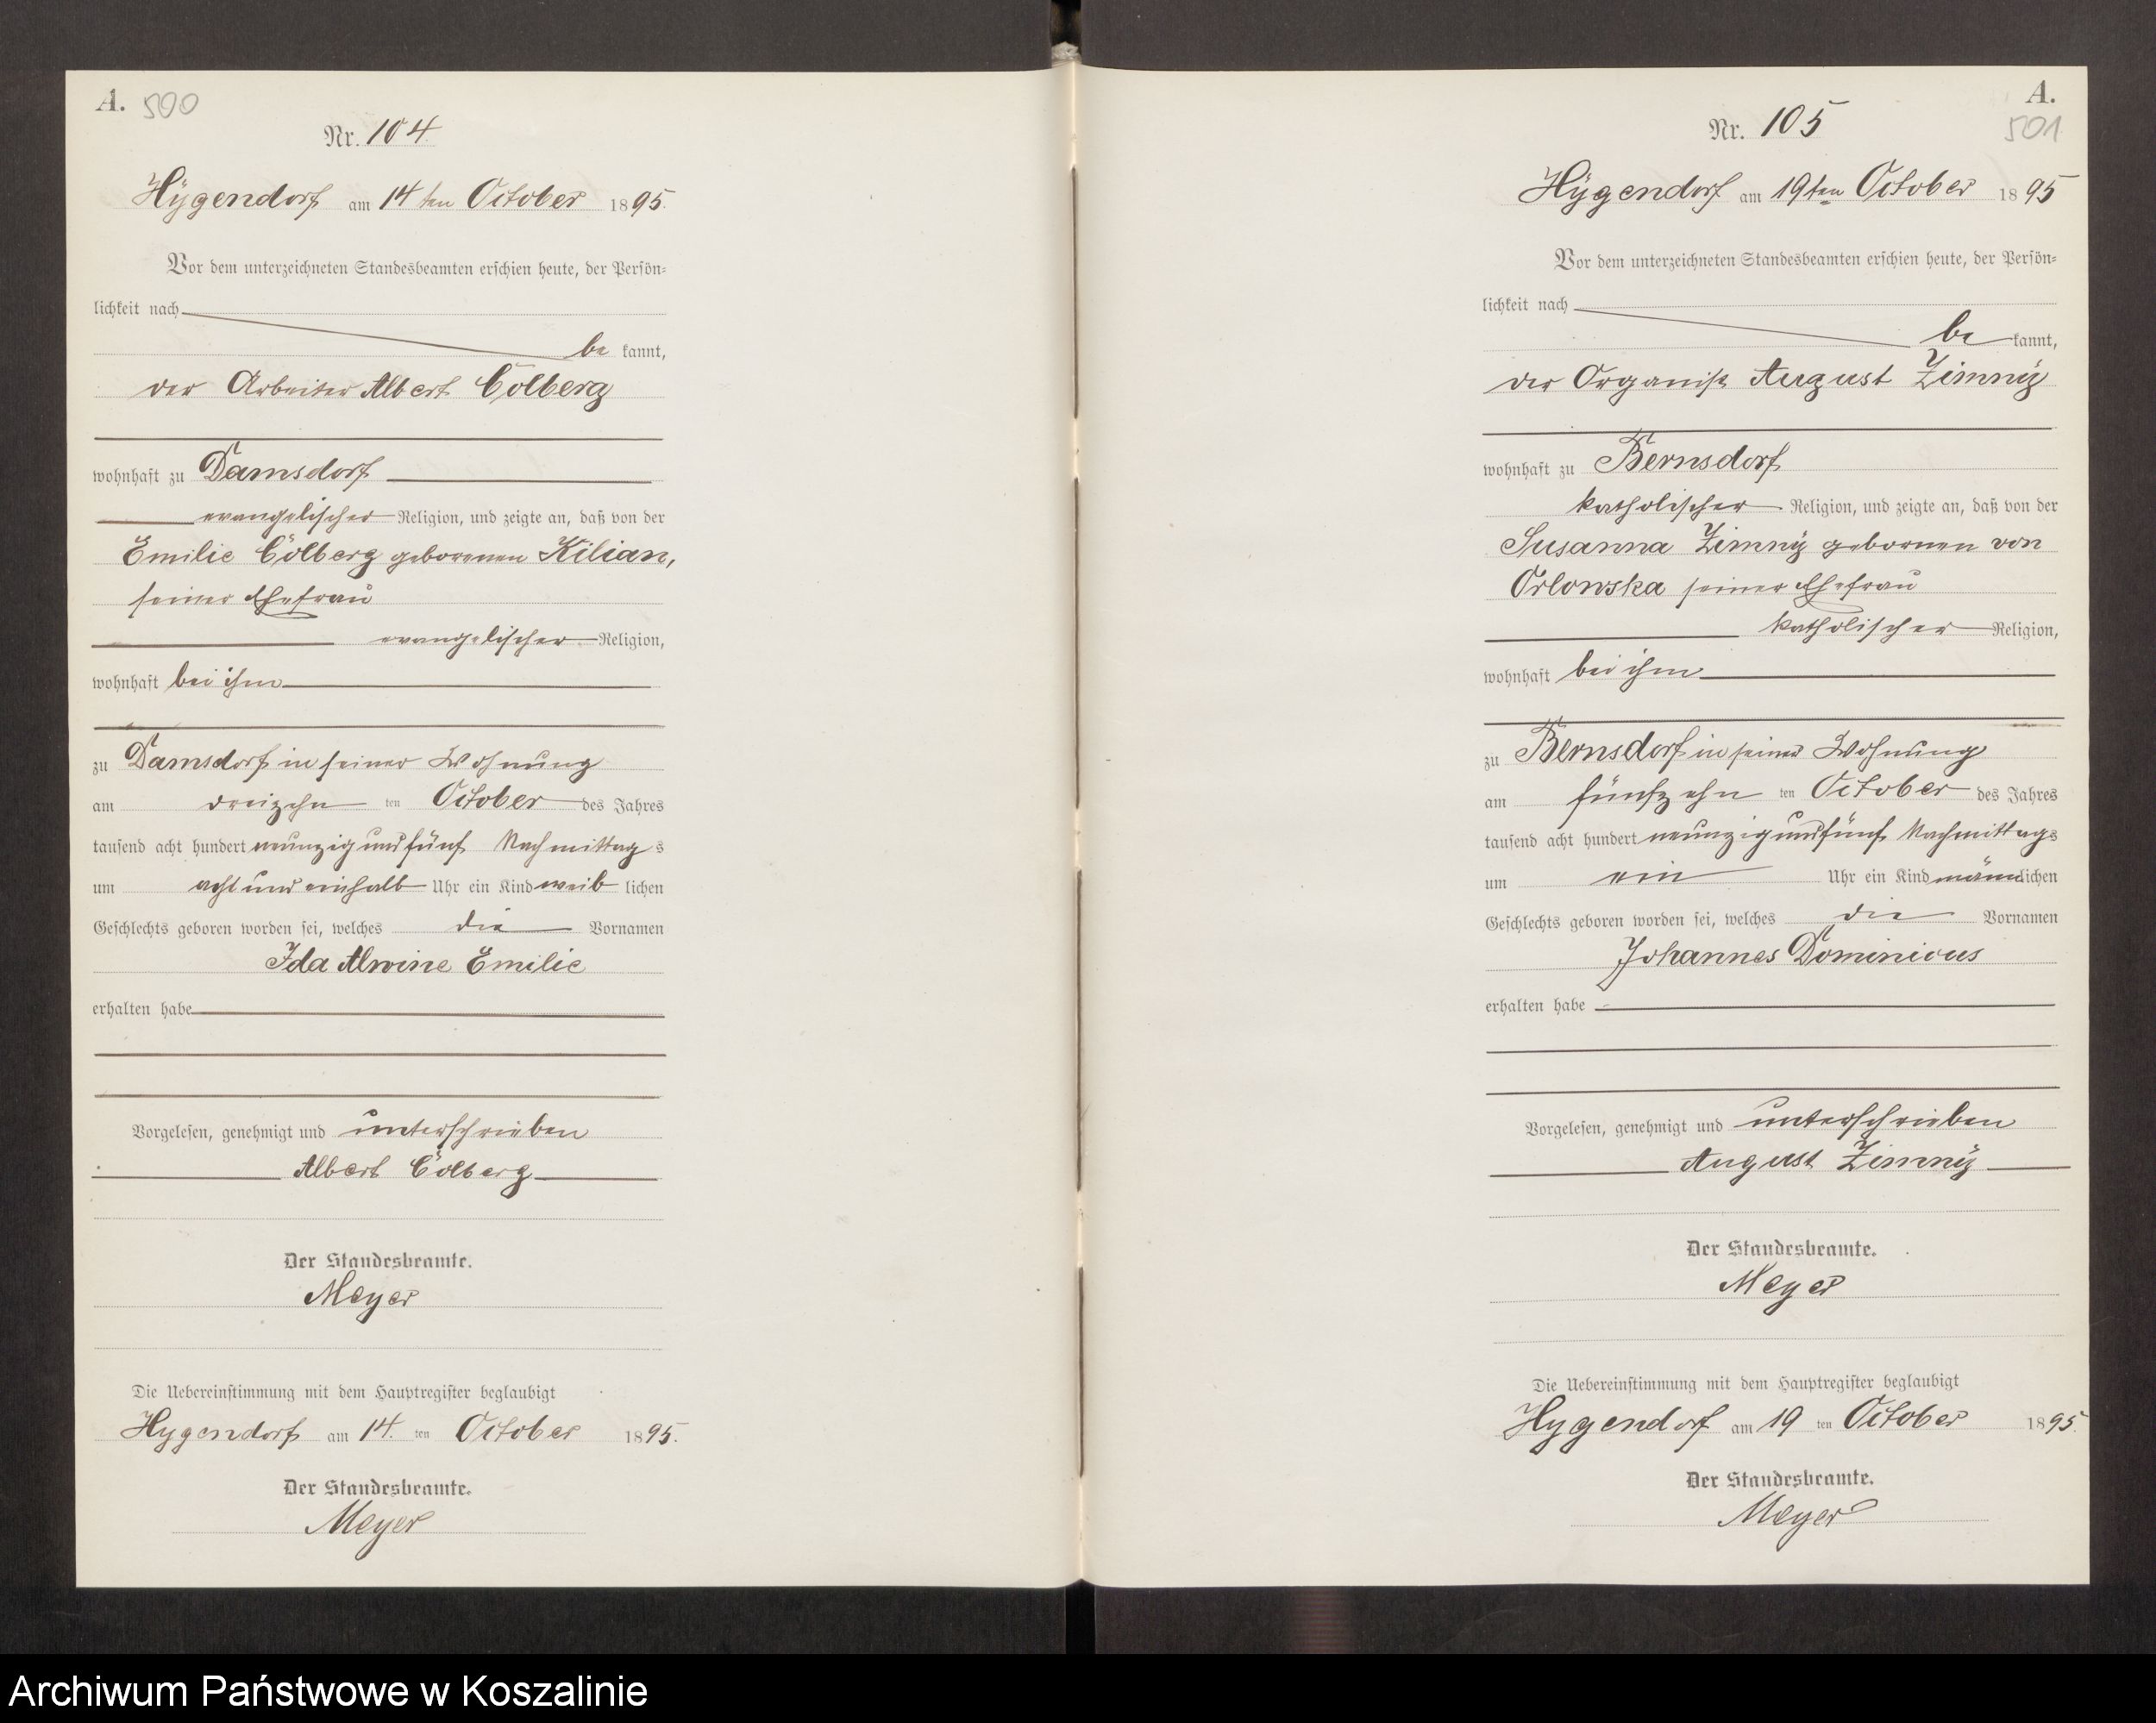 A. 500
Nr. 104
Hÿgendorf am 14ten October 1895.
Vor dem unterzeichneten Standesbeamten erschien heute, der Persön-
lichkeit nach
be kannt,
der Arbeiter Albert Cölberg
wohnhaft zu Damsdorf
evangelischer Religion, und zeigte an, daß von der
Emilie Cölberg geborenen Kilian,
seiner Ehefrau
evangelischer Religion,
wohnhaft bei ihm
zu Damsdorf in seiner Wohnung
am dreizehn ten October des Jahres
tausend acht hundert neunzig und fünf Nachmittag s
um acht und einhalb Uhr ein Kind weib lichen
Geschlechts geboren worden sei, welches die Vornamen
Ida Alwine Emilie
erhalten habe
Vorgelesen, genehmigt und unterschrieben
Albert Cölberg
Der Standesbeamte.
Meyer
Die Uebereinstimmung mit dem Hauptregister beglaubigt
Hygendorf am 14. ten October 1895.
Der Standesbeamte.
Meyer
A.
501
Nr. 105
Hÿgendorf am 19ten October 1895
Vor dem unterzeichneten Standesbeamten erschien heute, der Persön-
lichkeit nach
be kannt,
der Organist August Zimnÿ
wohnhaft zu Bernsdorf
katholischer Religion, und zeigte an, daß von der
Susanna Zimnÿ gebornen von
Orlowska seiner Ehefrau
katholischer Religion,
wohnhaft bei ihm
zu Bernsdorf in seiner Wohnung
am fünfzehn ten October des Jahres
tausend acht hundert neunzig und fünf Nachmittags
um ein Uhr ein Kind männlichen
Geschlechts geboren worden sei, welches die Vornamen
Johannes Dominicus
erhalten habe
Vorgelesen, genehmigt und unterschrieben
August Zimnÿ
Der Standesbeamte.
Meyer
Die Uebereinstimmung mit dem Hauptregister beglaubigt
Hygendorf am 19 ten October 1895.
Der Standesbeamte.
Meyer
Archiwum Państwowe w Koszalinie